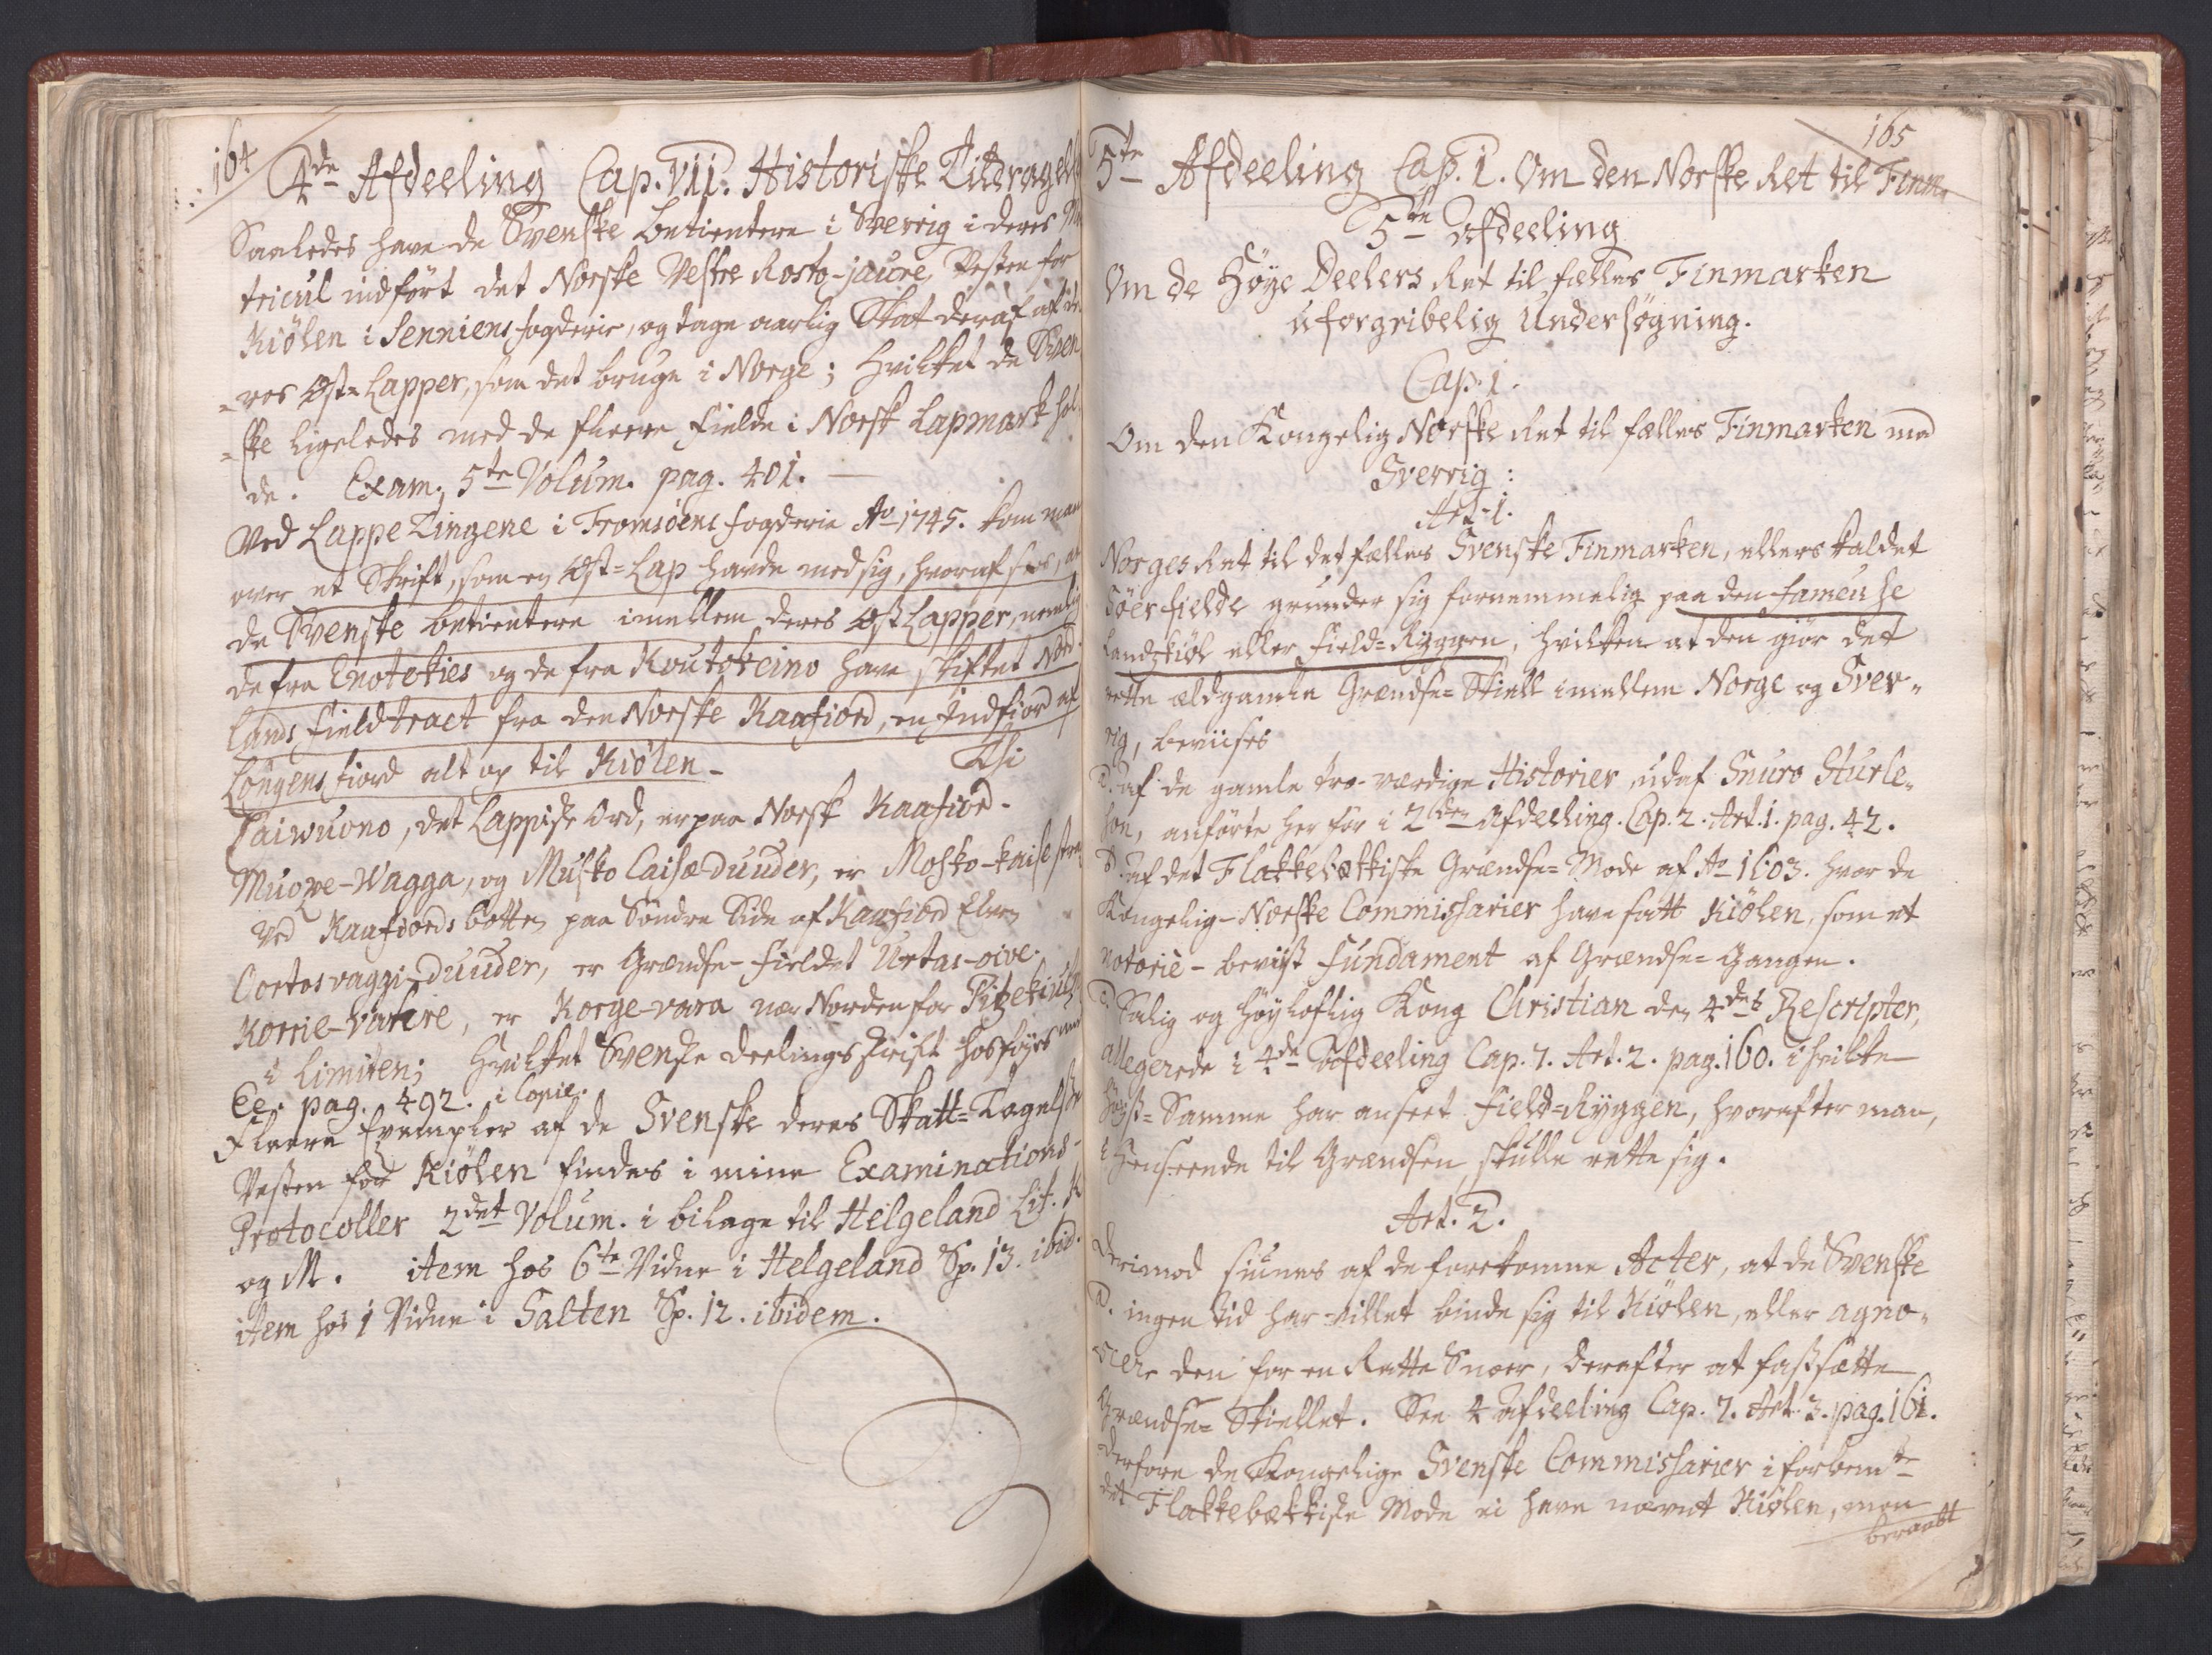 164
4de Afdeeling Cap. VII. Historiske Tildragels
Saaledes have de Svenske betientere i Sverrig i deres Ma
tricul indført det Norske Vestre Rosto-jaure, Vesten for
Kiølen i Senniens fogderie, og tage aarlig Skat deraf af de
=res Øst=Lapper, som det bruge i Norge; hvilket de Sven
=ske ligeledes med de fleere fielde i Norsk Lapmark hol
de. Exam. 5te Volum. pag. 401. —
Ved LappeTingene i Tromsøens fogderie Ao 1745. kom man
over et Skrift, som en Øst=Lap havde med sig, hvoraf sees, at
de Svenske betientere imellem deres Øst Lapper, nemlig
de fra Enotekies og de fra Koutokeino have skiftet Nord
lands fieldtract fra den Norske Kaafiord, en Indfiord af
Lÿngens fiord alt op til Kiølen - Thi
Caiwuono, det Lappiske Ord, er paa Norsk Kaafiord -
Muorve-Wagga, og Musko CaisæDuuder, er Mosko-kaise strax
ved Kaafiords botten paa Søndre Side af Kaafiord Elven
Cortosvaggi-Duuder, er Grændse-fieldet Urtas-oive.
Korrie-Varere, er Korge-vara nær Norden for Pitzekiul
i Limiten; Hvilket Svenske deelings skrift hosføyes
Ee. pag. 492. i Copie.
Fleere Exempler af de Svenske deres Skatt=Tagelse
Vesten for Kiølen findes i mine Examinations-
Protocoller 2det Volum. i bilage til Helgeland Lit. K
og M. item hos 6te Vidne i Helgeland Sp. 13. ibid.
item hos 1 Vidne i Salten Sp. 12. ibidem.
165
5te Afdeeling Cap. 1. Om den Norske Ret til Finm.
5te Afdeeling
Om de Høye Deelers Ret til fælles Finmarken
uforgribelig Undersøgning.
Cap. 1.
Om den Kongelig Norske Ret til fælles Finmarken med
Sverrig:
Art. 1.
Norges Ret til det fælles Svenske Finmarken, ellers kaldet
Søer-fielde grunder sig fornemmelig paa den fameuse
Landskiøl eller field=Ryggen, hvilken at den giør det
rette ældgamle Grændse=Skiell imellem Norge og Sver-
rig, beviises
af de gamle troværdige Historier, udaf Snuro Sturle-
son, anførte her før i 2den Afdeeling. Cap. 2. Art. 1. pag. 42.
af det Flakkebækkiske Grændse=Mode af Ao 1603. hvor de
Kongelig-Norske Commissarier have satt Kiølen, som et
notorie-beviist fundament af Grændse=Gangen.
Salig og høyloflig Kong Christian den 4des Rescripter,
allegerede i 4de Afdeeling Cap. 7. Art. 2. pag. 160. i hvilke
Høyst=Samme har anseet field=Ryggen, hvorefter man,
i Henseende til Grændsen, skulle rette sig.
Art. 2.
Derimod siunes af de forekomne Acter, at de Svenske
ingen tid har villet binde sig til Kiølen, eller agno-
scere den for en Rette Snoer, derefter at fastsætte
Grændse=Skiellet. See 4 Afdeeling Cap. 7. Art. 3. pag. 161.
Derfore de Kongelige Svenske Commissarier i forbemte
det Flakkebækkiske Mode ei have nævnt Kiølen, men
beraabt